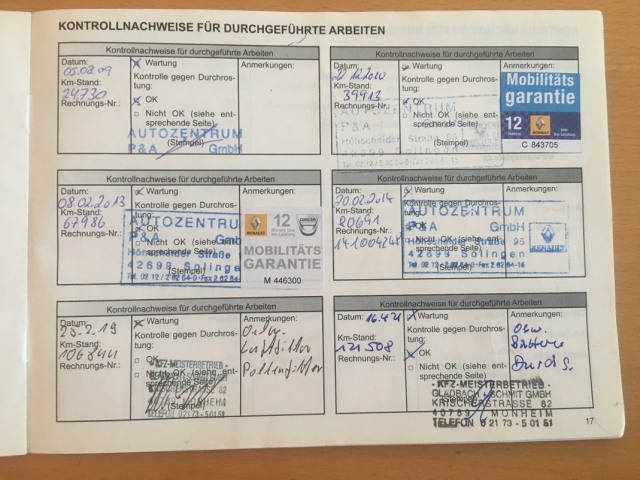 KONTROLLNACHWEISE FÜR DURCHGEFÜHRTE ARBEITEN
Kontrollnachweise für durchgeführte Arbeiten
Datum:
05.08.09
Km-Stand:
24730
Rechnungs-Nr.:
Wartung
Kontrolle gegen Durchros-
tung:
OK
Nicht OK (siehe ent-
sprechende Seite)
(Stempel)
Anmerkungen:
AUTOZENTRUM
P&A GmbH
Kontrollnachweise für durchgeführte Arbeiten
Datum:
12.2010
Km-Stand:
39913
Rechnungs-Nr.:
Wartung
Kontrolle gegen Durchros-
tung:
OK
Nicht OK (siehe ent-
sprechende Seite)
(Stempel)
Anmerkungen:
AUTOZENTRUM
P&A GmbH
Höhscheider Straße
42699 Solingen
Mobilitäts
garantie
12
RENAULT
C 843705
Kontrollnachweise für durchgeführte Arbeiten
Datum:
08.02.2013
Km-Stand:
67986
Rechnungs-Nr.:
Wartung
Kontrolle gegen Durchros-
tung:
OK
Nicht OK (siehe ent-
sprechende Seite)
(Stempel)
Anmerkungen:
AUTOZENTRUM
P&A GmbH
Höhscheider Straße
42699 Solingen
12
MOBILITÄTS
GARANTIE
M 446300
Kontrollnachweise für durchgeführte Arbeiten
Datum:
20.02.2014
Km-Stand:
Rechnungs-Nr.:
Wartung
Kontrolle gegen Durchros-
tung:
OK
Nicht OK (siehe ent-
sprechende Seite)
(Stempel)
Anmerkungen:
AUTOZENTRUM
P&A GmbH
Höhscheider Straße 95
42699 Solingen
RENAULT
Kontrollnachweise für durchgeführte Arbeiten
Datum:
Km-Stand:
Rechnungs-Nr.:
Wartung
Kontrolle gegen Durchros-
tung:
OK
Nicht OK (siehe ent-
sprechende Seite)
(Stempel)
Anmerkungen:
Luftfilter
Pollenfilter
KFZ-MEISTERBETRIEB
MONHEIM
TELEFON 02173-50151
Kontrollnachweise für durchgeführte Arbeiten
Datum:
16.4.21
Km-Stand:
121508
Rechnungs-Nr.:
Wartung
Kontrolle gegen Durchros-
tung:
OK
Nicht OK (siehe ent-
sprechende Seite)
(Stempel)
Anmerkungen:
KFZ-MEISTERBETRIEB
GLADBACH SCHMIT GMBH
KRISCHERSTRASSE 82
40789 MONHEIM
TELEFON 02173-50151
17